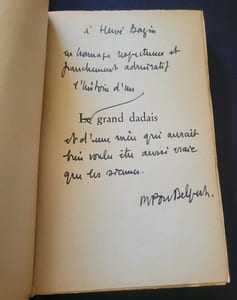 à Hervé Bazin
en hommage respectueux et
franchement admiratif
l'histoire d'un
Le grand dadais
et d'une mère qui aurait
bien voulu être aussi vraie
que les siennes.
Delpech.